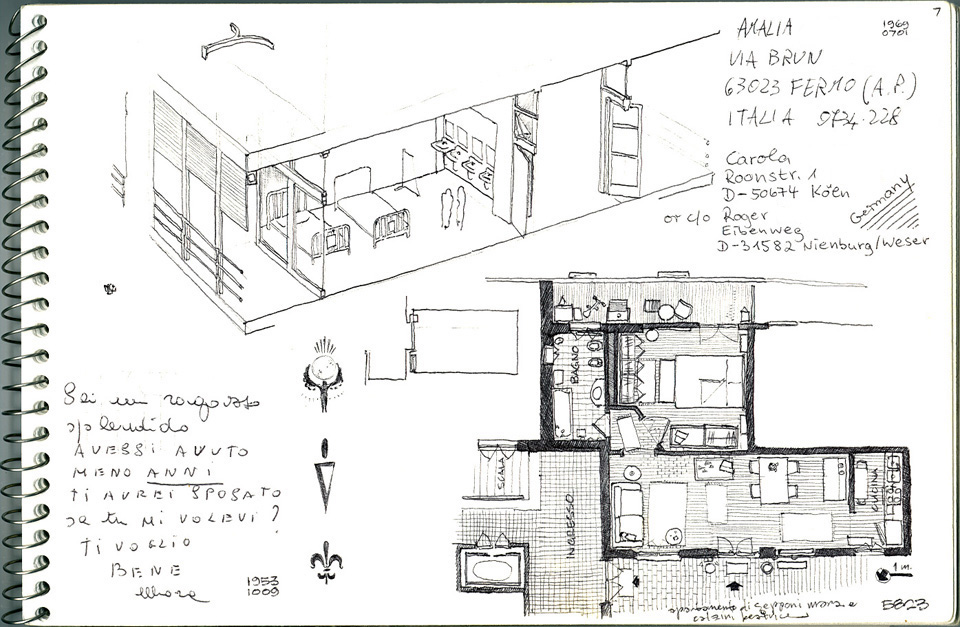 7
1969
0701
AMALIA
VIA BRUN
63023 FERMO (A.P.)
ITALIA 0734.228
Carola
Roonstr. 1
D-50674 Köln
Germany
or c/o Roger
Eibenweg
D-31582 Nienburg/Weser
BAGNO
SCALA
INGRESSO
CUCINA
1 m.
Sei un ragazzo
splendido
AVESSI AVUTO
MENO ANNI
TI AVREI SPOSATO
se tu MI VOLEVI?
TI VOGLIO
BENE
1953
1009
appartamento di
5823